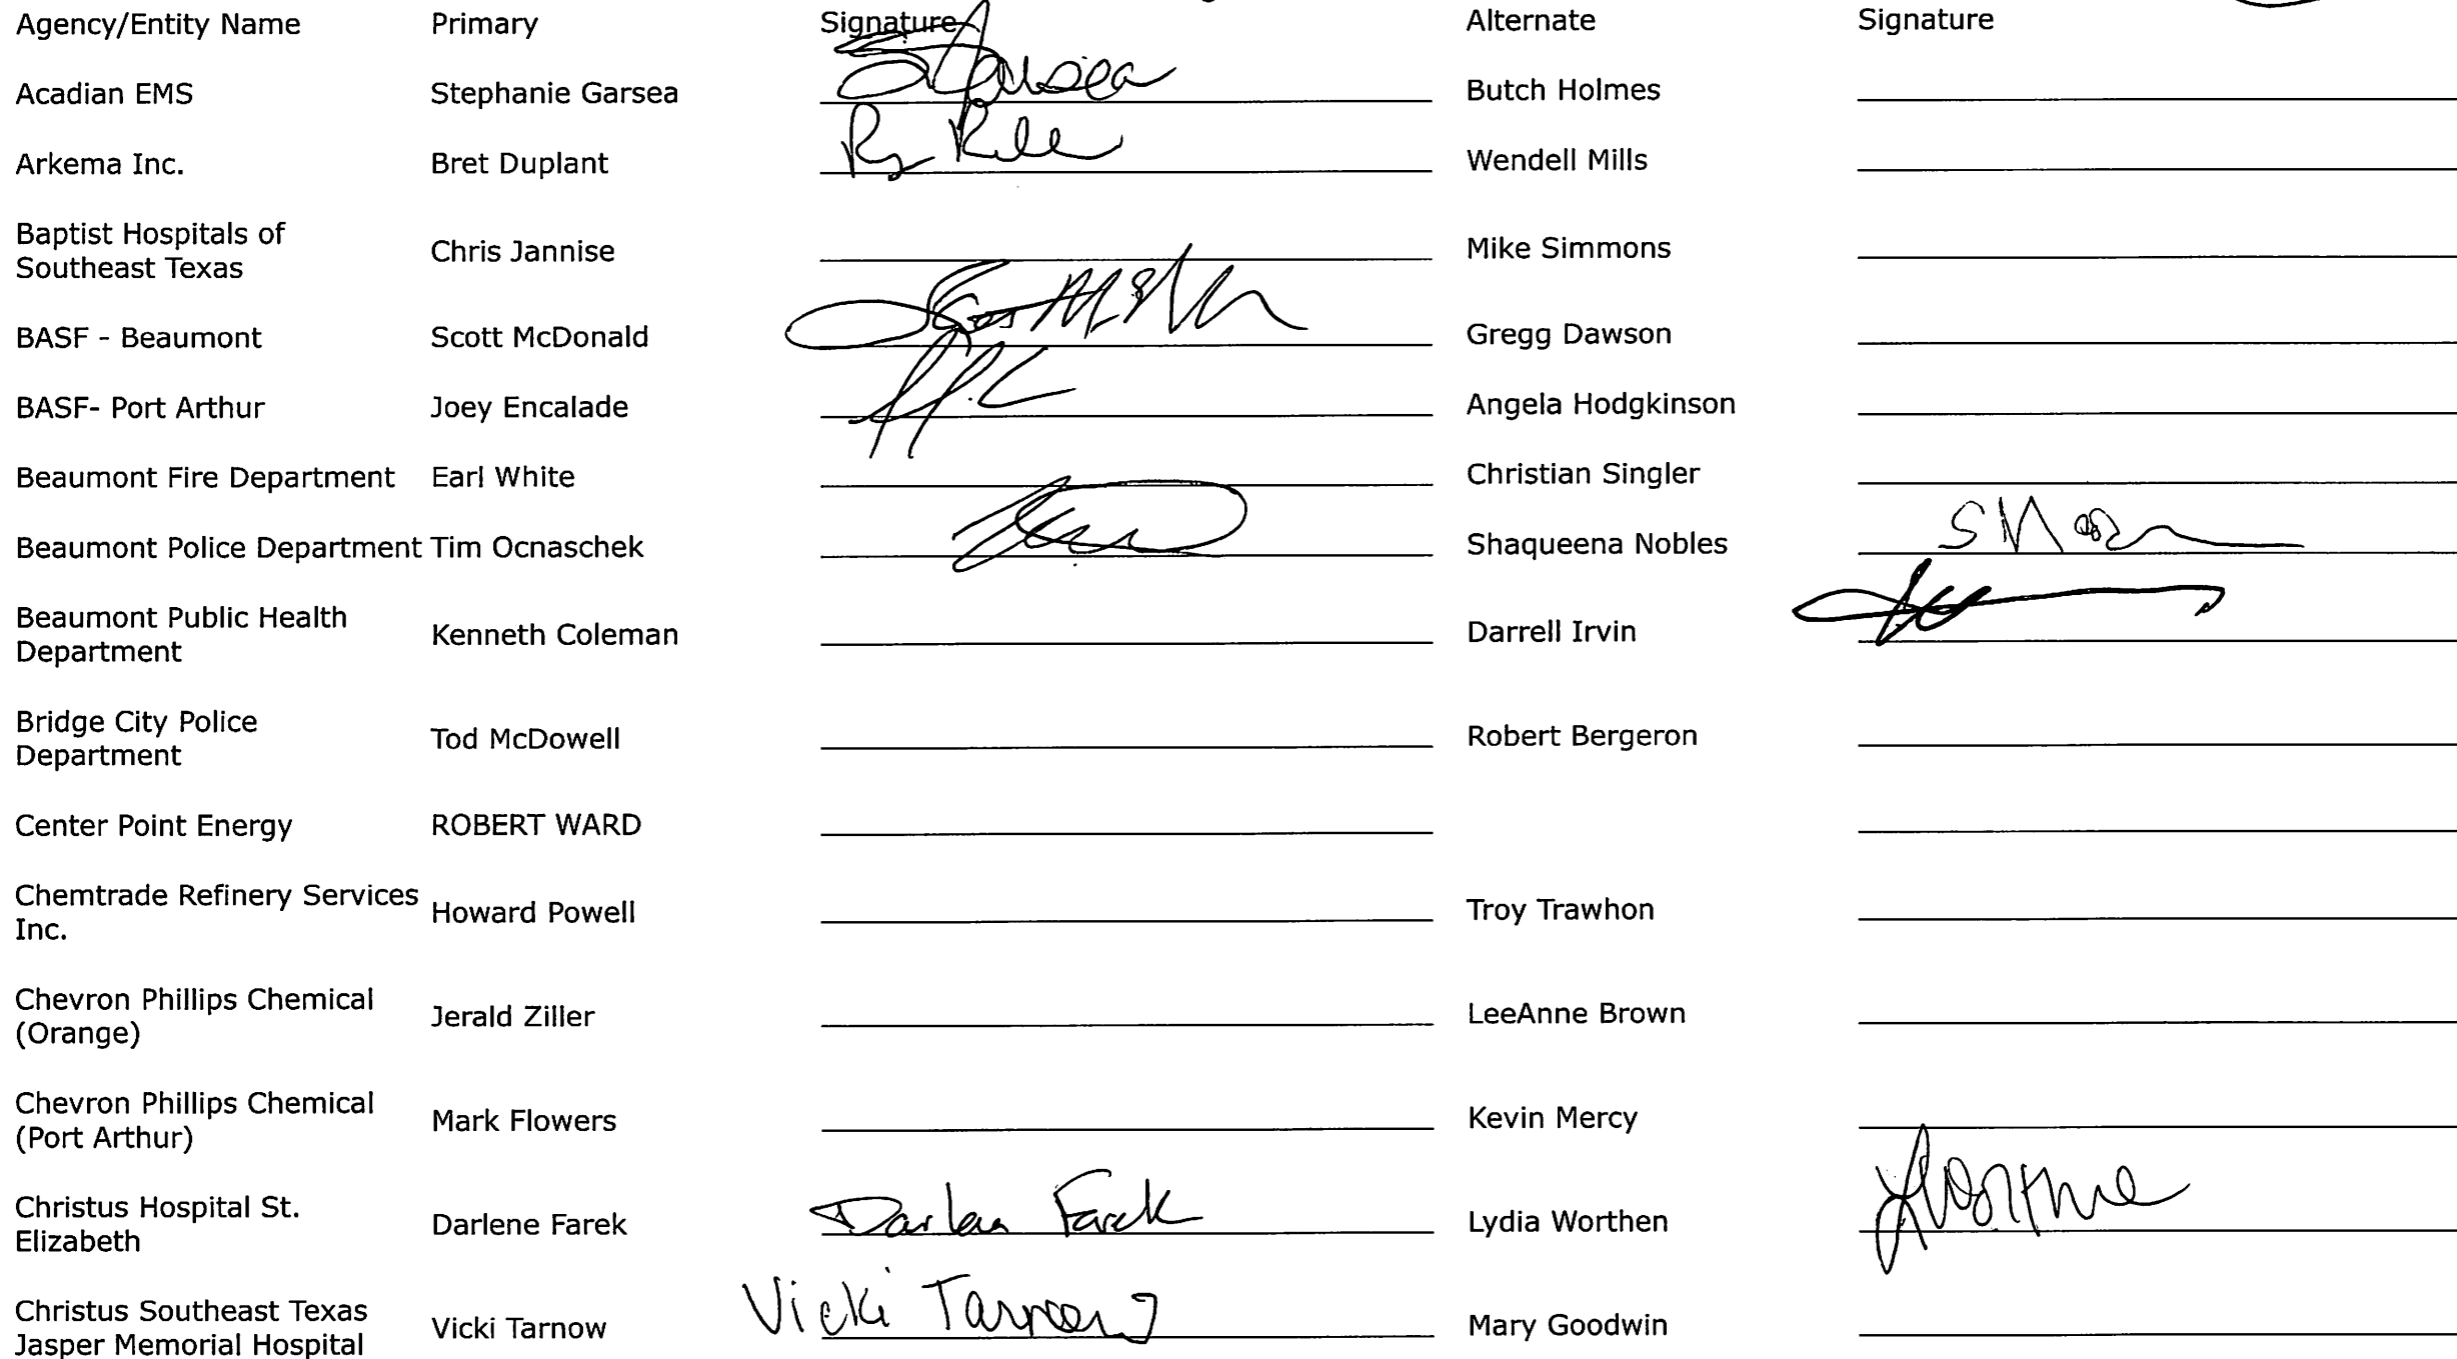 Agency/Entity Name Primary Signature Alternate Signature
Acadian EMS Stephanie Garsea Garsea Butch Holmes
Arkema Inc. Bret Duplant Wendell Mills
Baptist Hospitals of
Southeast Texas Chris Jannise Mike Simmons
BASF - Beaumont Scott McDonald Gregg Dawson
BASF- Port Arthur Joey Encalade Angela Hodgkinson
Beaumont Fire Department Earl White Christian Singler
Beaumont Police Department Tim Ocnaschek Shaqueena Nobles
Beaumont Public Health
Department Kenneth Coleman Darrell Irvin
Bridge City Police
Department Tod McDowell Robert Bergeron
Center Point Energy ROBERT WARD
Chemtrade Refinery Services
Inc. Howard Powell Troy Trawhon
Chevron Phillips Chemical
(Orange) Jerald Ziller LeeAnne Brown
Chevron Phillips Chemical
(Port Arthur) Mark Flowers Kevin Mercy
Christus Hospital St.
Elizabeth Darlene Farek Darlene Farek Lydia Worthen
Christus Southeast Texas
Jasper Memorial Hospital Vicki Tarnow Vicki Tarnow Mary Goodwin